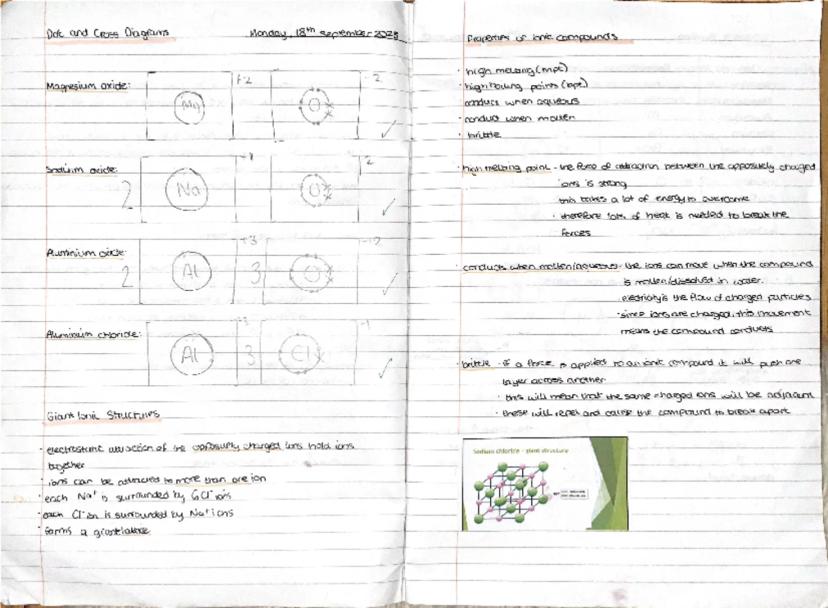 Dot and Cross Diagrams
Monday, 18th September 2023
Magnesium oxide:
Mg
+2
O
-2
Sodium oxide:
2
Na
O
2
Aluminium oxide:
2
Al
+3
3
O
Aluminium chloride:
Al
3
Cl
-1
Giant Ionic Structures
· electrostatic attraction of the oppositely charged ions hold ions
together
· ions can be attracted to more than one ion
· each Na+ is surrounded by 6 Cl- ions
· each Cl- ion is surrounded by Na+ ions
· forms a giant lattice
Properties of ionic compounds
· high melting (mpt)
· high boiling points (bpt)
· conduct when aqueous
· conduct when molten
· brittle
· high melting point - the force of attraction between the oppositely charged
ions is strong
this takes a lot of energy to overcome
· therefore lots of heat is needed to break the
forces
· conducts when molten/aqueous - the ions can move when the compound
is molten/dissolved in water.
electricity is the flow of charged particles
· since ions are charged, this movement
means the compound conducts
· brittle - if a force is applied to an ionic compound it will push one
layer across another
· this will mean that the same charged ions will be adjacent
· these will repel and cause the compound to break apart
Sodium chloride - giant structure